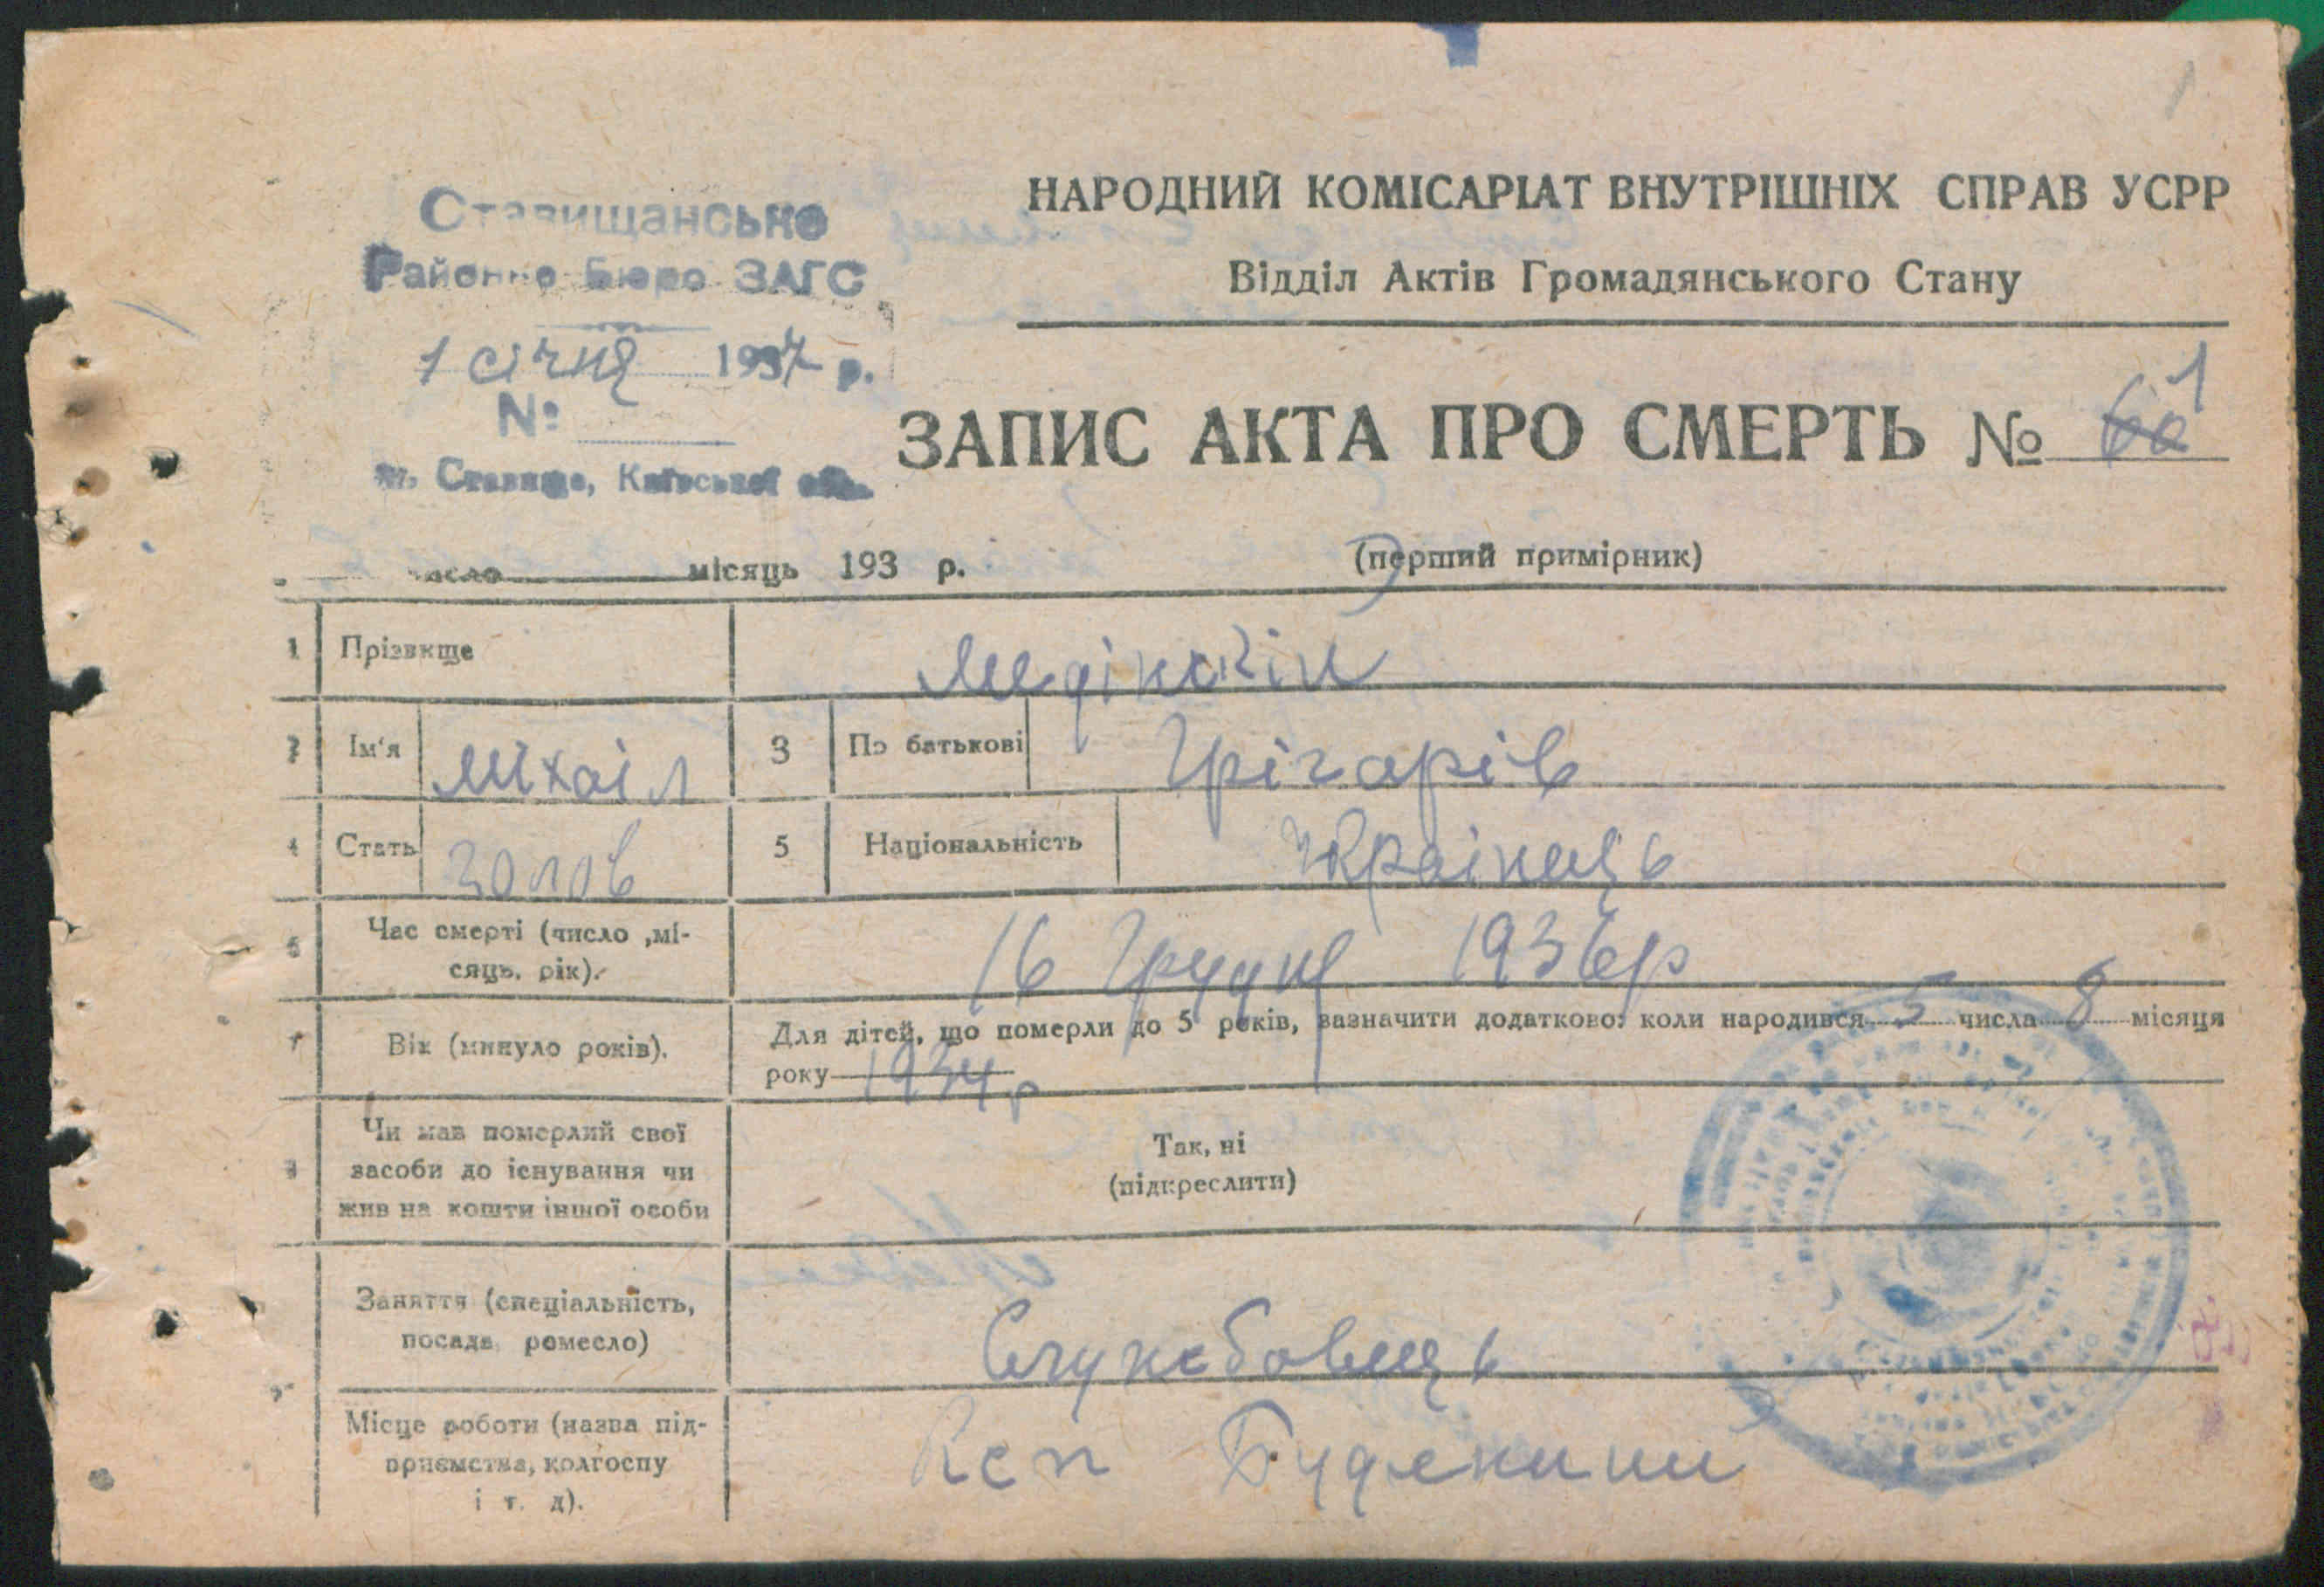 Ставищанське
Районне Бюро ЗАГС
1 січня 1937 р.
№
м. Ставище, Київської обл.
НАРОДНИЙ КОМІСАРІАТ ВНУТРІШНІХ СПРАВ УСРР
Відділ Актів Громадянського Стану
ЗАПИС АКТА ПРО СМЕРТЬ № 1
число місяць 193 р.
(перший примірник)
1 Прізвище Медінскій
2 Ім'я Міхаіл 3 По батькові Грігорів
4 Стать 5 Національність Украінець
6 Час смерті (число ,мі-
сяць, рік). 16 Грудня 1936р
7 Вік (минуло років). Для дітей, що померли до 5 років, зазначити додатково: коли народився 5 числа 8 місяця
року 1934р
8 Чи мав померлий свої
засоби до існування чи
жив на кошти іншої особи
Так, ні
(підкреслити)
Заняття (спеціальність,
посада, ремесло) Службовець
Місце роботи (назва під-
приємства, колгоспу
і т. д).